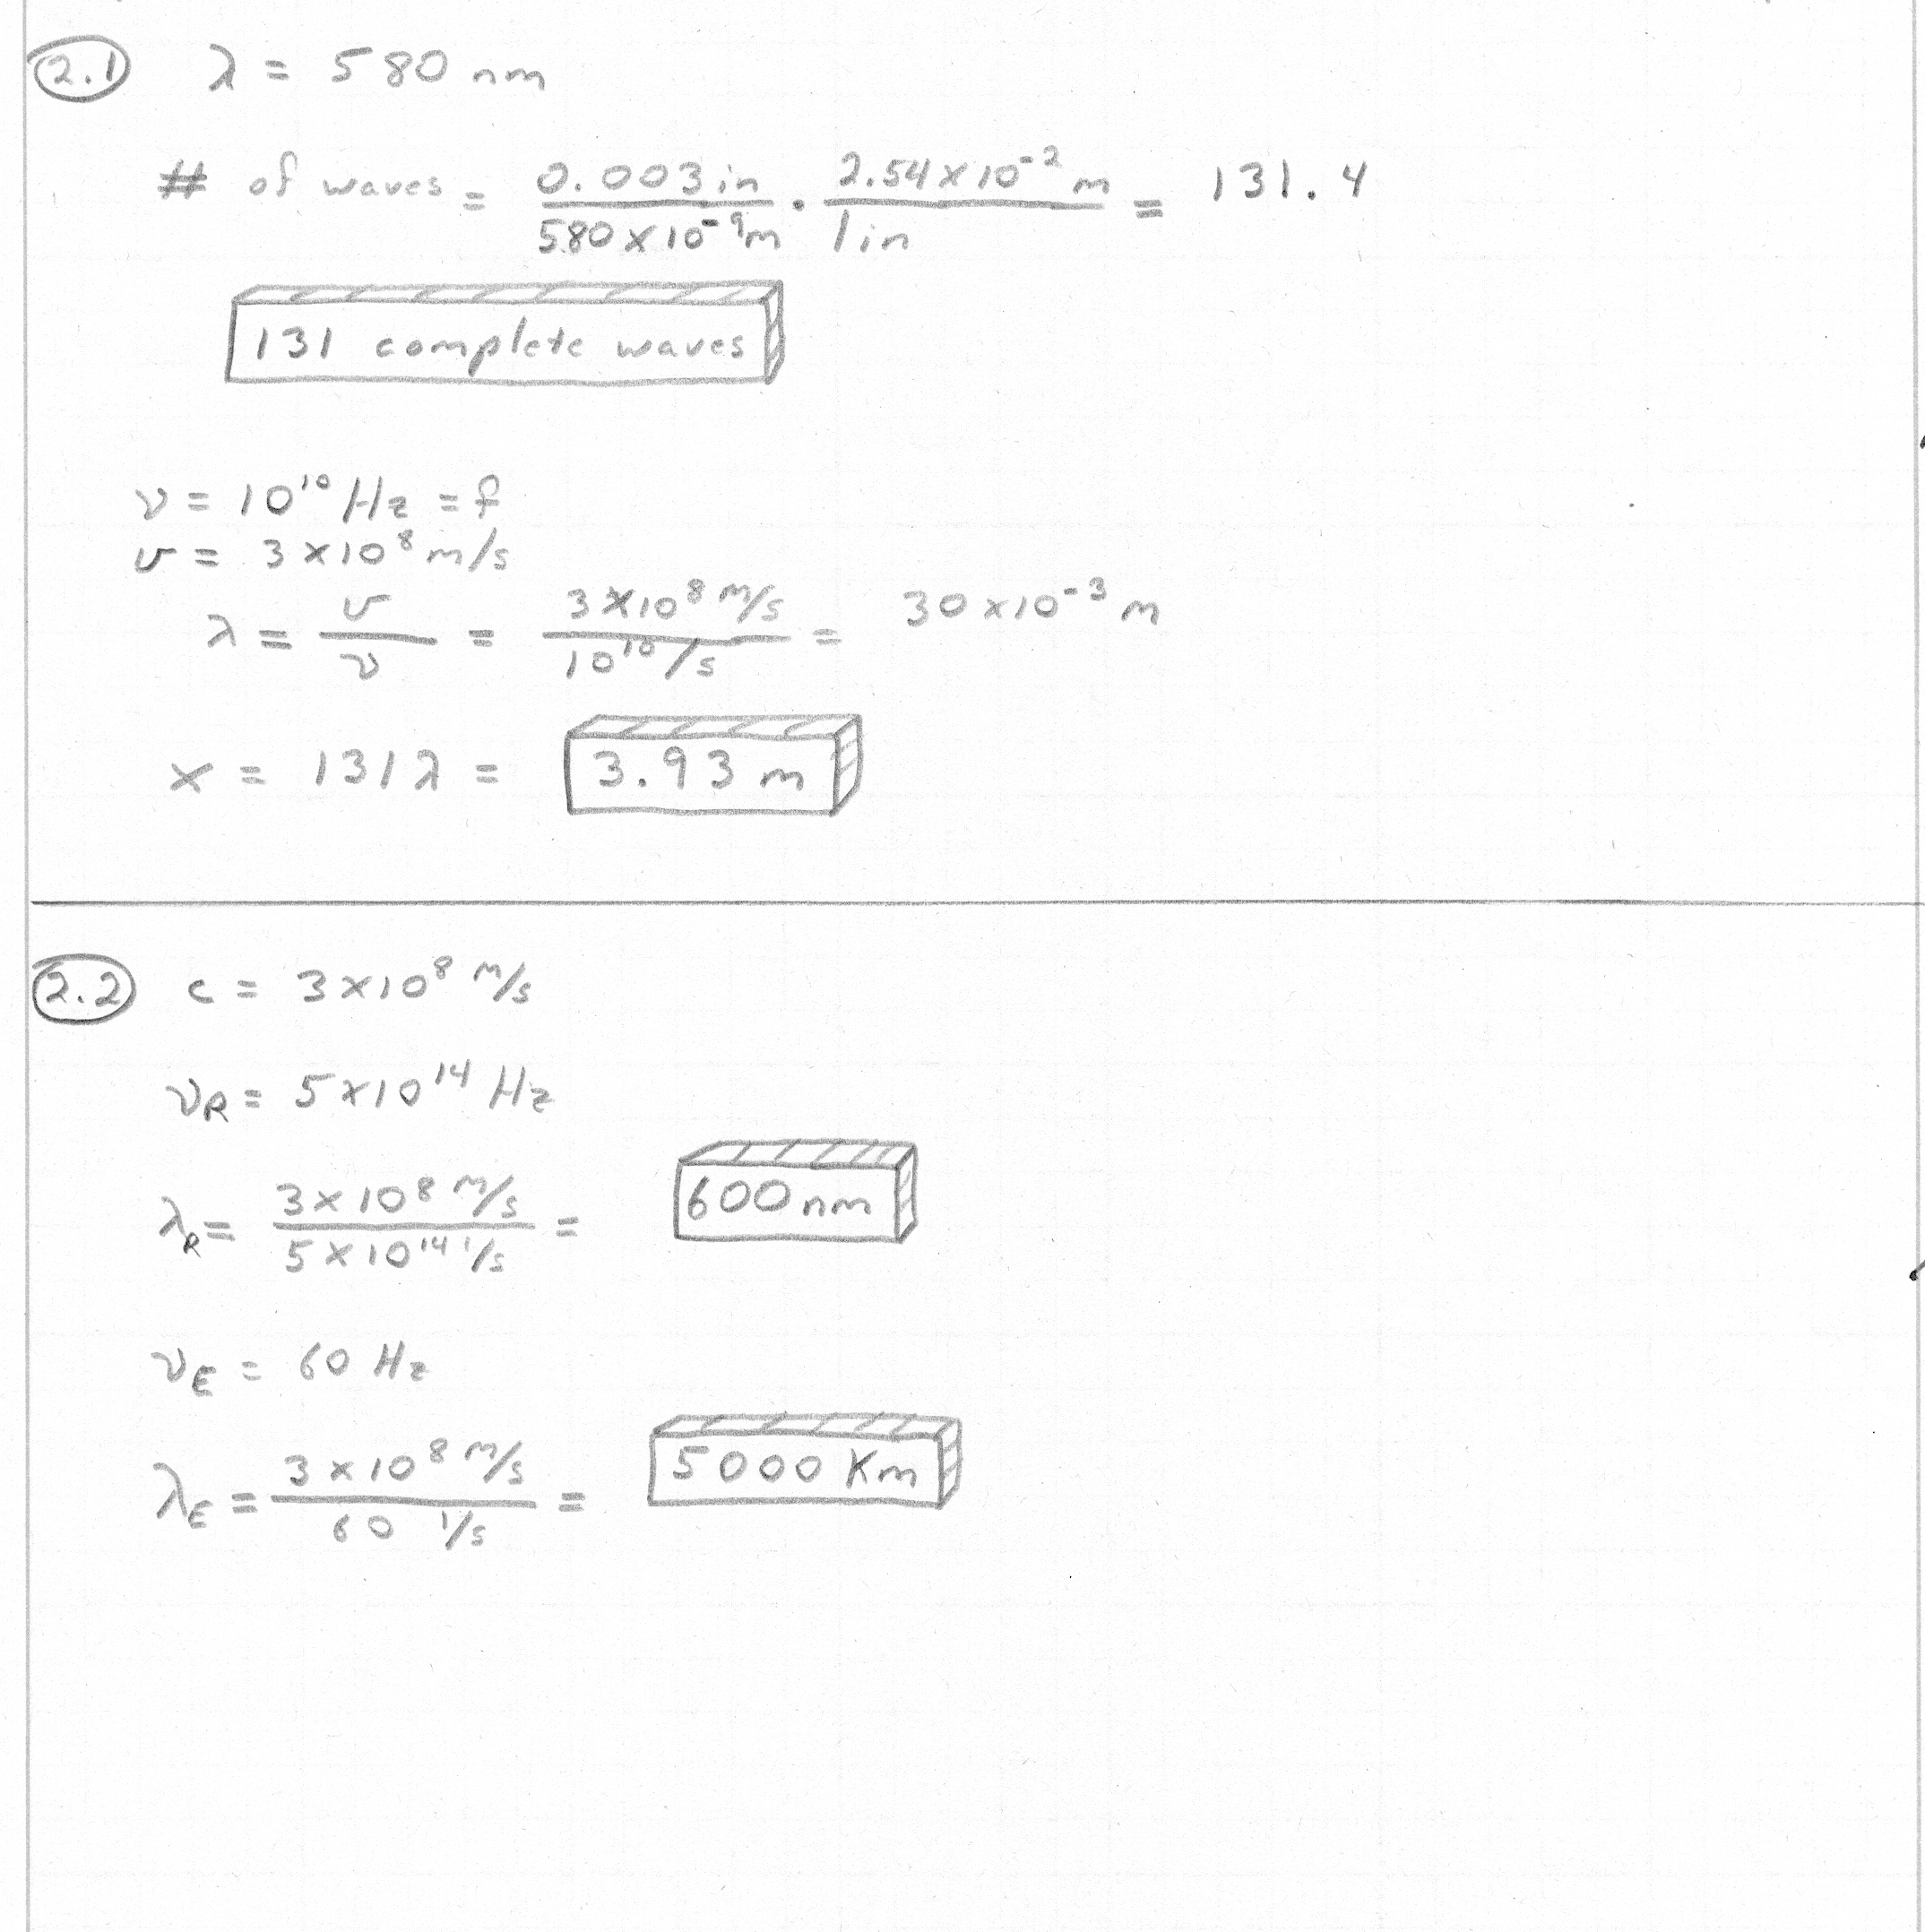 2.1 λ = 580 nm
# of waves = 0.003 in / 580 x 10⁻⁹ m · 2.54 x 10⁻² m / 1 in = 131.4
131 complete waves
ν = 10¹⁰ Hz = f
v = 3 x 10⁸ m/s
λ = v / ν = 3 x 10⁸ m/s / 10¹⁰/s = 30 x 10⁻³ m
x = 131 λ = 3.93 m
2.2 c = 3 x 10⁸ m/s
ν_R = 5 x 10¹⁴ Hz
λ_R = 3 x 10⁸ m/s / 5 x 10¹⁴ 1/s = 600 nm
ν_E = 60 Hz
λ_E = 3 x 10⁸ m/s / 60 1/s = 5000 Km